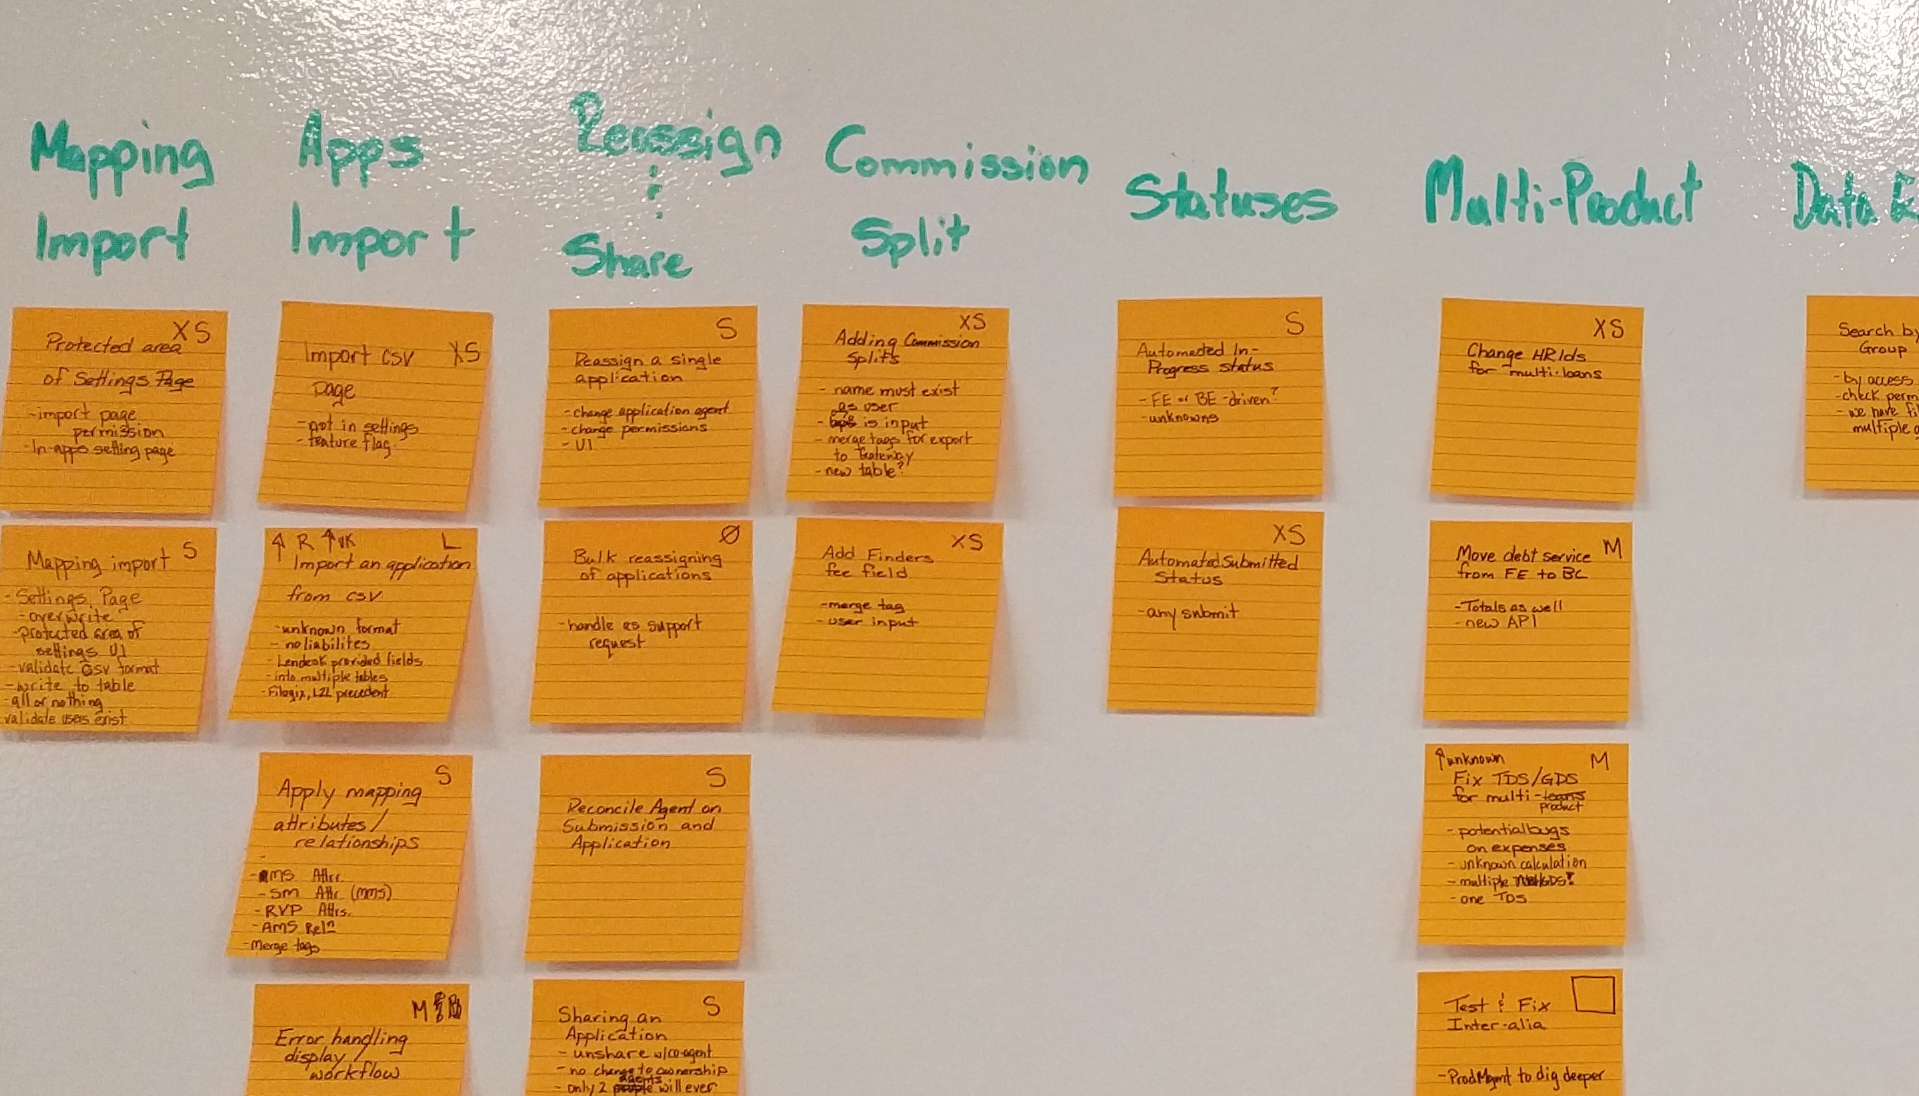 Mapping
Import
Apps
Import
Reassign
&
Share
Commission
Split
Statuses
Multi-Product
Data E
XS
Protected area
of Settings Page
- import page
permission
- In-apps setting page
S
Mapping import
- Settings Page
- overwrite
- protected area of
settings UI
- validate csv format
- write to table
- all or nothing
validate users exist
Import csv XS
page
- not in settings
- feature flag
↑ R ↑ UK L
Import an application
from csv
- unknown format
- no liabilites
- Lendesk provided fields
- into multiple tables
- Filogix, precedent
S
Apply mapping
attributes/
relationships
- AMS Attr.
- SM Attr. (MMS)
- RVP Attrs.
- AMS Reln
- Merge tags
M
Error handling
display/
workflow
S
Reassign a single
application
- change application agent
- change permissions
- UI
Ø
Bulk reassigning
of applications
- handle as support
request
S
Reconcile Agent on
Submission and
Application
S
Sharing an
Application
- unshare w/co-agent
- no change to ownership
agents
- only 2 people will ever
XS
Adding Commission
Splits
- name must exist
as user
- bps is input
- merge tags for export
to Gateway
- new table?
XS
Add Finders
fee field
- merge tag
- user input
S
Automated In-
Progress status
- FE or BE-driven?
- unknowns
XS
Automated Submitted
Status
- any submit
XS
Change HRIds
for multi-loans
M
Move debt service
from FE to BE
- Totals as well
- new API
↑ unknown M
Fix TDS/GDS
for multi-loans
product
- potential bugs
on expenses
- unknown calculation
- multiple GDS?
- one TDS
Test & Fix
Inter-alia
- ProdMgmt to dig deeper
Search by
Group
- by access
- check perm
- we have fi
multiple